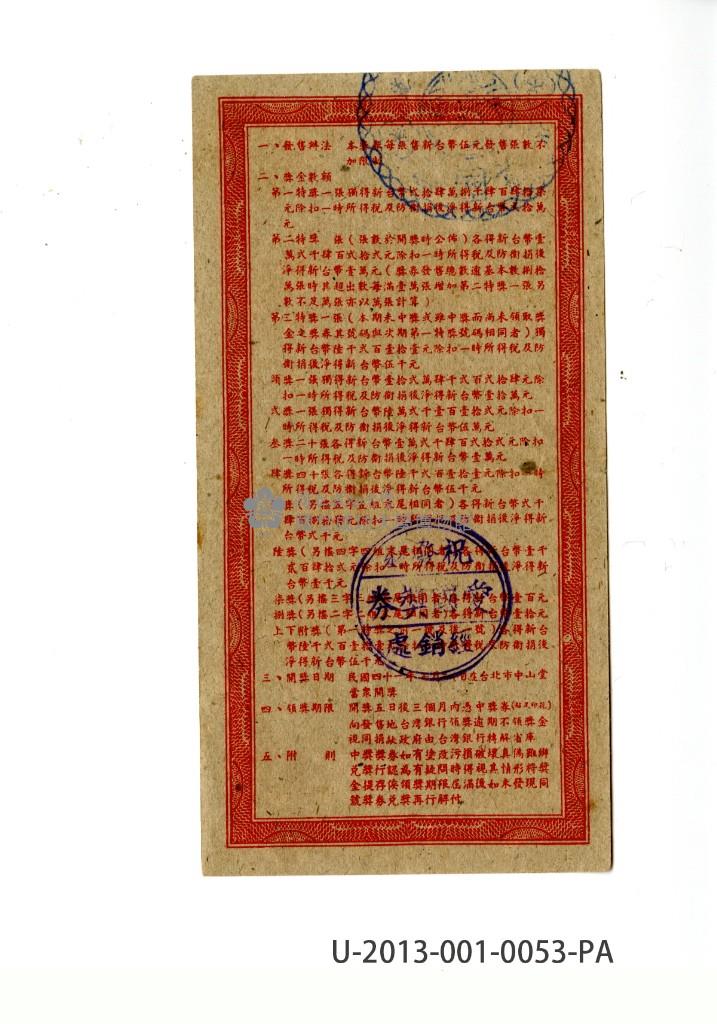 一、發售辦法 本券每張售新台幣伍元發售張數不
加限制
二、獎金數額
第一特獎一張獨得新台幣式拾肆萬捌千肆百肆拾
元除扣一時所得稅及防衛捐後淨得新台幣式拾萬
元
第二特獎 張(張數於開獎時公佈)各得新台幣壹
萬式千肆百式拾式元除扣一時所得稅及防衛捐後
淨得新台幣壹萬元(獎券發售總數逾基本數捌拾
萬張時其超出數每滿壹萬張增加第二特獎一張另
數不足萬張亦以萬張計算)
第三特獎一張(本期未中獎或雖中獎而尚未領取獎
金之獎券其號碼與次期第一特獎號碼相同者)獨
得新台幣陸千式百壹拾壹元除扣一時所得稅及防
衛捐後淨得新台幣伍千元
頭獎一張獨得新台幣壹拾式萬肆千式百式拾肆元除
扣一時所得稅及防衛捐後淨得新台幣壹拾萬元
式獎一張獨得新台幣陸萬式千壹百壹拾式元除扣一
時所得稅及防衛捐後淨得新台幣伍萬元
叁獎二十張各得新台幣壹萬式千肆百式拾式元除扣
一時所得稅及防衛捐後淨得新台幣壹萬元
肆獎四十張各得新台幣陸千式百壹拾壹元除扣一時
所得稅及防衛捐後淨得新台幣伍千元
獎(另搖五字五組末尾相同者)各得新台幣式千
肆百捌拾元除扣一時所得稅及防衛捐後淨得新
台幣式千元
陸獎(另搖四字四組末尾相同者)各得新台幣壹千
貳百肆拾式元除扣一時所得稅及防衛捐後淨得新
台幣壹千元
柒獎(另搖三字三組末尾相同者)各得新台幣壹百元
捌獎(另搖二字二組末尾相同者)各得新台幣壹拾元
上下附獎(第一特獎之前一號及後一號)各得新台
幣陸千式百壹拾壹元除扣一時所得稅及防衛捐後
淨得新台幣伍千元
三、開獎日期 民國四十一年 月 日在台北市中山堂
當眾開獎
四、領獎期限 開獎五日後三個月內憑中獎券(貼足印花)
向發售地台灣銀行領獎逾期不領獎金
視同捐獻政府由台灣銀行轉解省庫
五、附則 中獎獎券如有塗改污損破壞真偽難辨
兌獎行認為有疑問時得視其情形將獎
金提存俟領獎期限屆滿後如未發現同
號獎券兌獎再行解付
祝發
愛國獎券
經銷處
U-2013-001-0053-PA